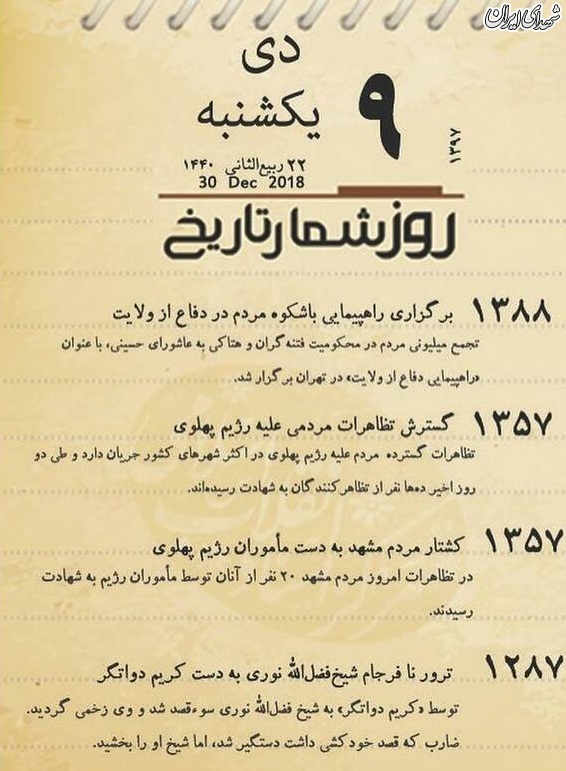 شهدای ایران
دی
۹
یکشنبه
۱۳۹۷
۲۲ ربیع‌الثانی ۱۴۴۰
30 Dec 2018
روزشمار تاریخ
۱۳۸۸ برگزاری راهپیمایی باشکوه مردم در دفاع از ولایت
تجمع میلیونی مردم در محکومیت فتنه‌گران و هتاکی به عاشورای حسینی، با عنوان
«راهپیمایی دفاع از ولایت» در تهران برگزار شد.
۱۳۵۷ گسترش تظاهرات مردمی علیه رژیم پهلوی
تظاهرات گسترده مردم علیه رژیم پهلوی در اکثر شهرهای کشور جریان دارد و طی دو
روز اخیر ده‌ها نفر از تظاهرکنندگان به شهادت رسیده‌اند.
۱۳۵۷ کشتار مردم مشهد به دست مأموران رژیم پهلوی
در تظاهرات امروز مردم مشهد ۲۰ نفر از آنان توسط مأموران رژیم به شهادت
رسیدند.
۱۲۸۷ ترور نا فرجام شیخ‌فضل‌الله نوری به دست کریم دواتگر
توسط «کریم دواتگر» به شیخ فضل‌الله نوری سوءقصد شد و وی زخمی گردید.
ضارب که قصد خودکشی داشت دستگیر شد، اما شیخ او را بخشید.